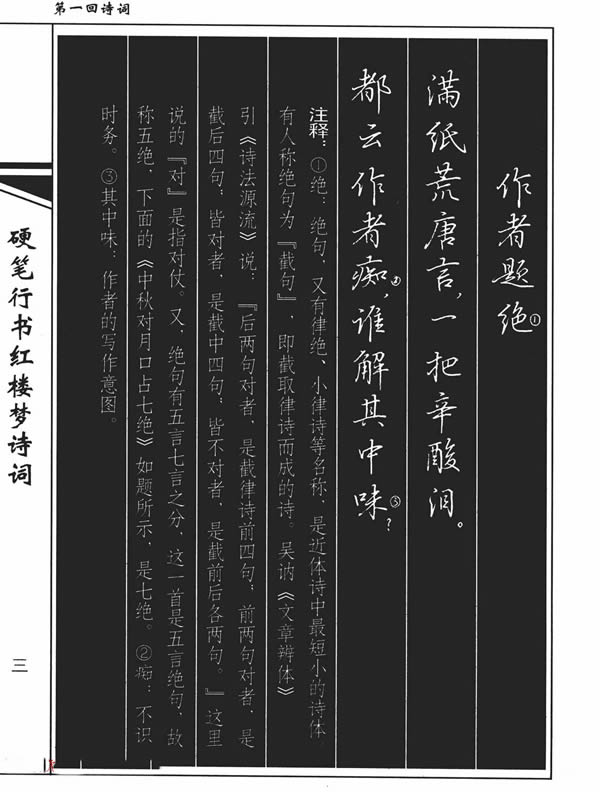 第一回诗词
作者题绝①
满纸荒唐言，一把辛酸泪。
都云作者痴②，谁解其中味③？
注释：①绝：绝句，又有律绝、小律诗等名称，是近体诗中最短小的诗体
有人称绝句为『截句』，即截取律诗而成的诗。吴讷《文章辨体》
引《诗法源流》说：『后两句对者，是截律诗前四句；前两句对者，是
截后四句；皆对者，是截中四句；皆不对者，是截前后各两句。』这里
说的『对』是指对仗。又，绝句有五言七言之分，这一首是五言绝句，故
称五绝，下面的《中秋对月口占七绝》如题所示，是七绝。②痴：不识
时务。③其中味：作者的写作意图。
硬笔行书红楼梦诗词
三